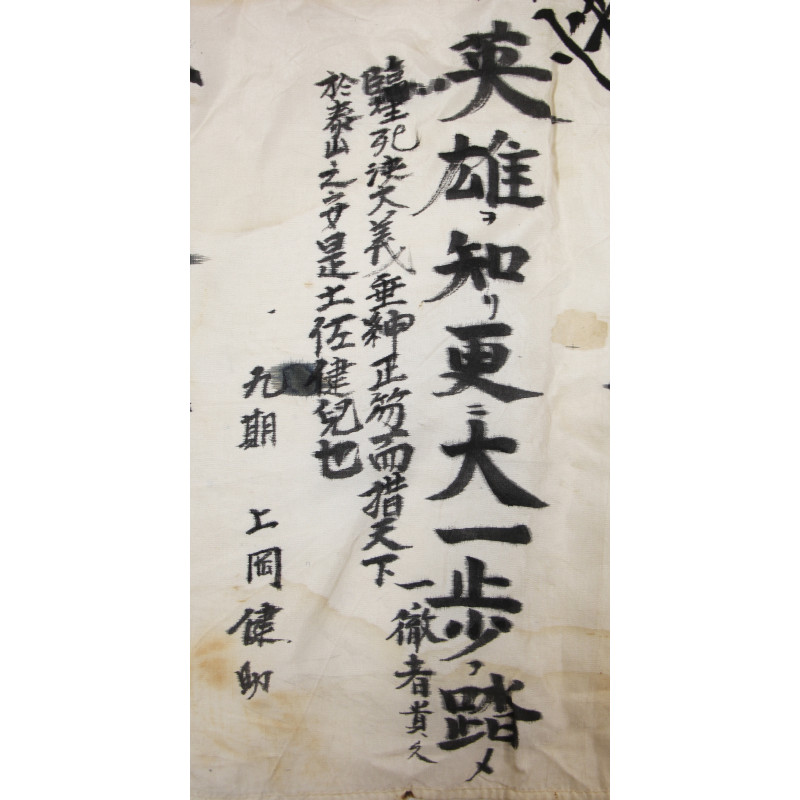 英雄ヲ知リ更ニ大一歩ヲ踏メ
一徹者貴久
臨生死決大義垂紳正笏而措天下
於泰山之安是土佐健兒也
九期 上岡健助